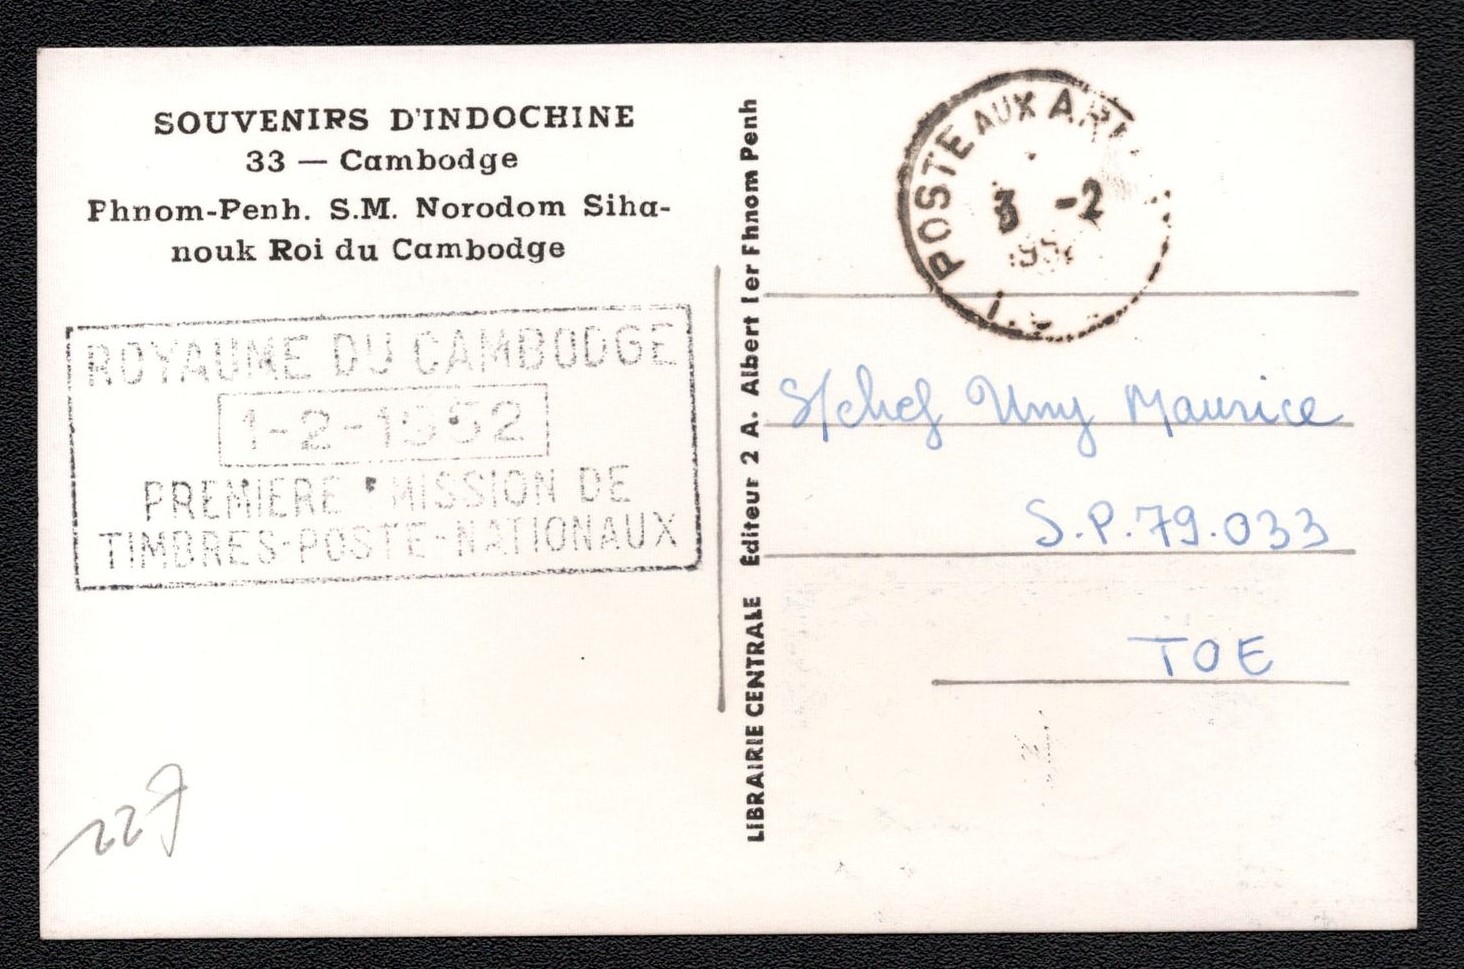 SOUVENIRS D'INDOCHINE
33 — Cambodge
Phnom-Penh. S.M. Norodom Siha-
nouk Roi du Cambodge
ROYAUME DU CAMBODGE
1-2-1952
PREMIERE EMISSION DE
TIMBRES-POSTE-NATIONAUX
227
LIBRAIRIE CENTRALE Editeur 2 A. Albert 1er Phnom Penh
POSTE AUX
3 -2
S/chef Umy Maurice
S.P. 79.033
TOE